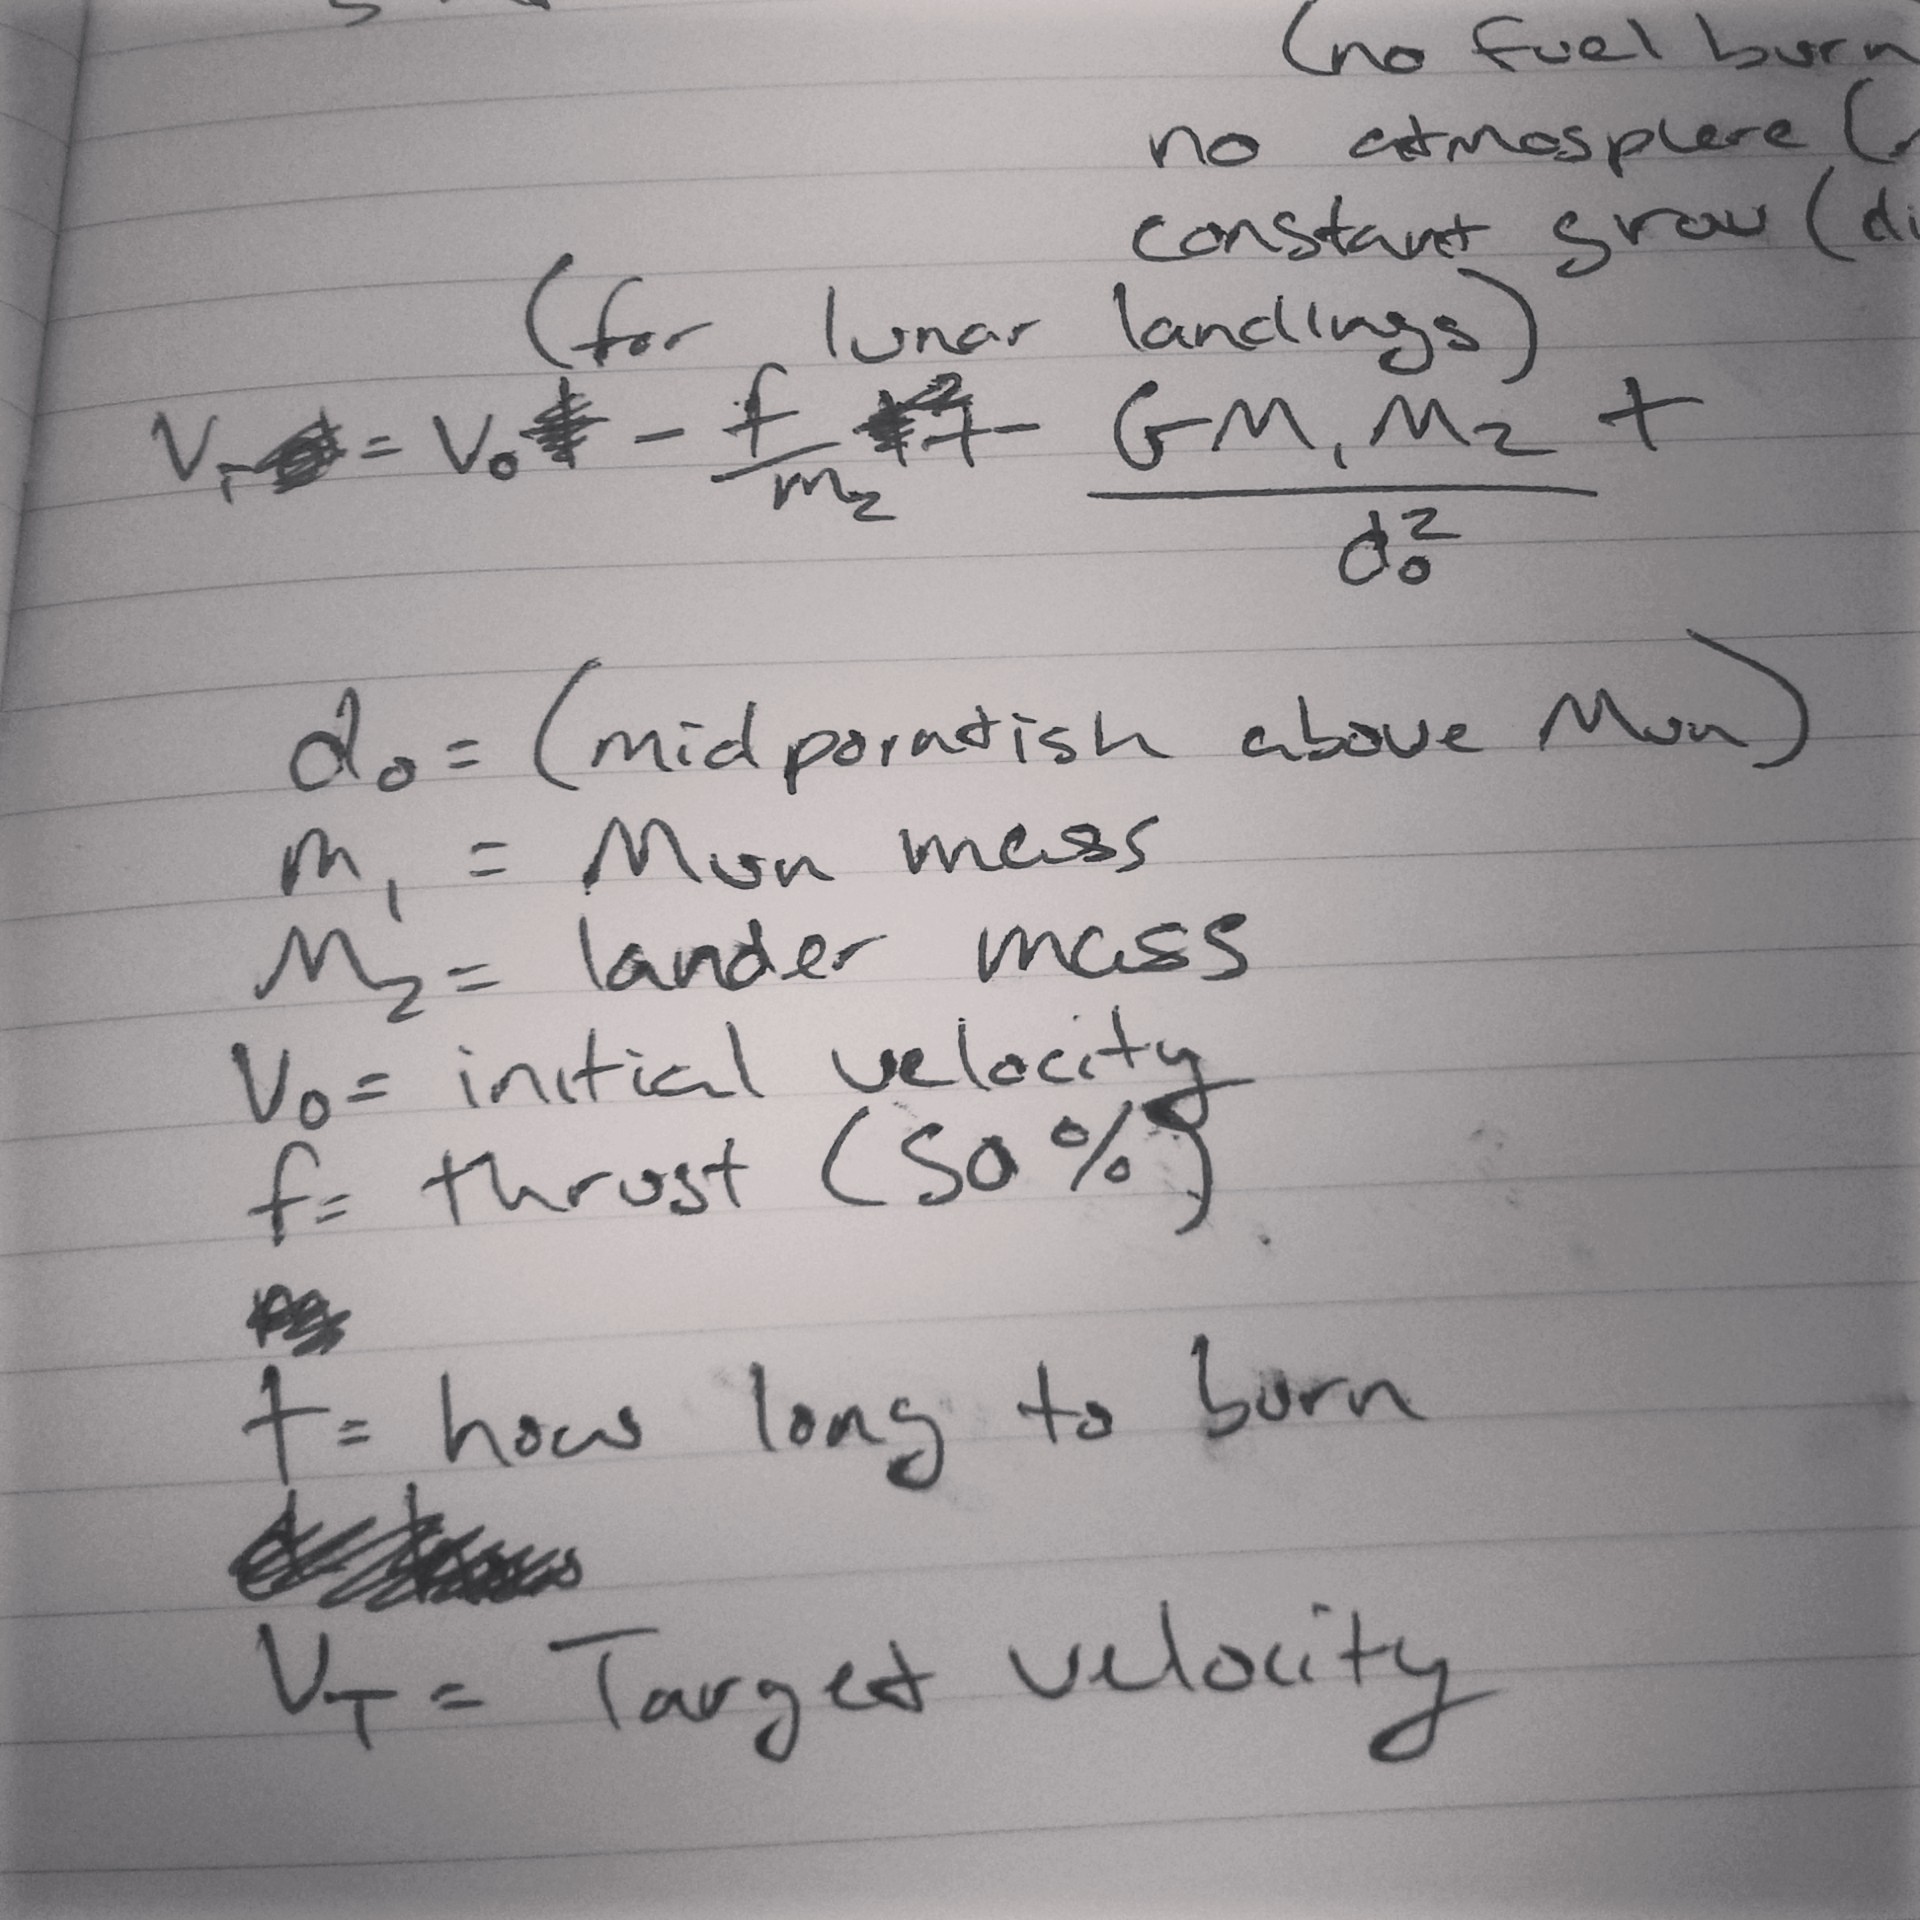 (no fuel burn
no atmosplere (
constant grav (di
(for lunar landings)
V_T = V_0 - f/m_2 t - GM_1M_2/d_0^2 t
d_0 = (midporntish above Mun)
m_1 = Mun mass
M_2 = lander mass
V_0 = initial velocity
f = thrust (50%)
t = how long to burn
V_T = Target velocity